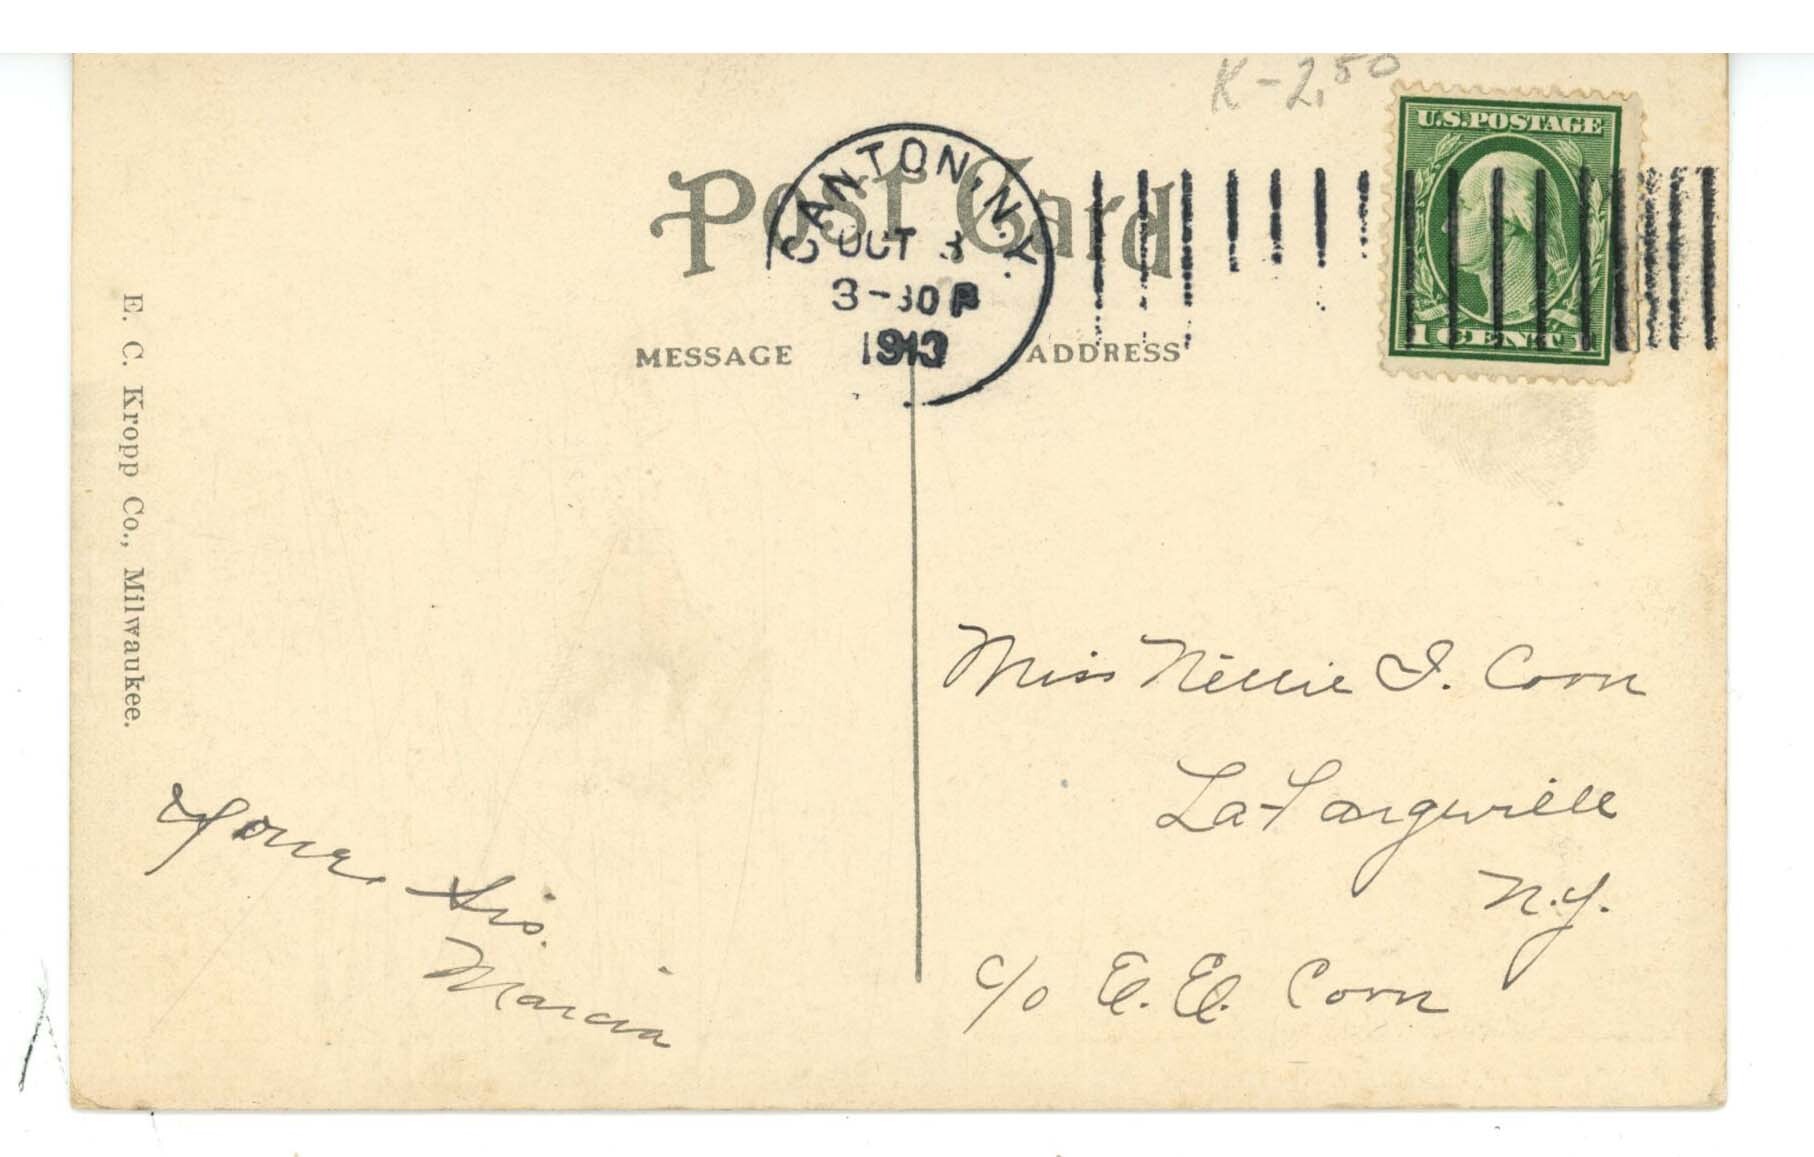 K-2.50
U.S.POSTAGE
1 CENT 1
Post Card
CANTON, N.Y.
OCT 3
3-30 P
1913
MESSAGE
ADDRESS
E. C. Kropp Co., Milwaukee.
Miss Nellie I. Corn
La-Fargeville
N.Y.
c/o E. E. Corn
Your Sis.
Marcia